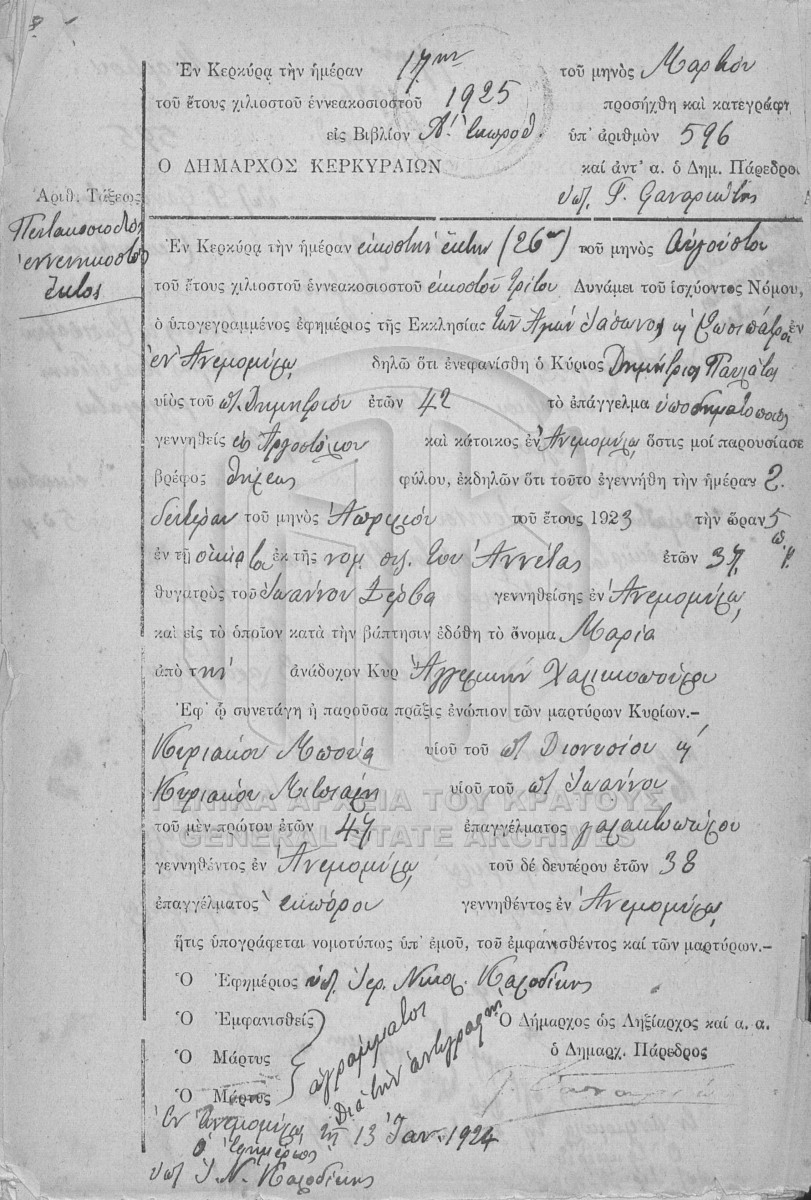 Ἐν Κερκύρᾳ τὴν ἡμέραν 17ην τοῦ μηνὸς Μαρτίου
τοῦ ἔτους χιλιοστοῦ ἐννεακοσιοστοῦ 1925 προσήχθη καὶ κατεγράφη
εἰς Βιβλίον Α! ἐκπροθ. ὑπ' ἀριθμὸν 596
Ο ΔΗΜΑΡΧΟΣ ΚΕΡΚΥΡΑΙΩΝ καί ἀντ' α. ὁ Δημ. Πάρεδρο
Ἀριθ. Τάξεως
Πεντακοσιοστὸς
ἐννενηκοστὸς
ἕκτος
Ἐν Κερκύρᾳ τὴν ἡμέραν εἰκοστὴν ἕκτην (26ην) τοῦ μηνὸς Αὐγούστου
τοῦ ἔτους χιλιοστοῦ ἐννεακοσιοστοῦ εἰκοστοῦ τρίτου Δυνάμει τοῦ ἰσχύοντος Νόμου,
ὁ ὑπογεγραμμένος ἐφημέριος τῆς Ἐκκλησίας τῶν Ἁγίων Ἰάσωνος κ Σωσιπάτρου ἐν
ἐν Ἀνεμομύλῳ δηλῶ ὅτι ἐνεφανίσθη ὁ Κύριος Δημήτριος
υἱὸς τοῦ Δημητρίου ἐτῶν 42 τὸ ἐπάγγελμα ὑποδηματοποιὸς
γεννηθεὶς εἰς Ἀργοστόλιον καὶ κάτοικος ἐν Ἀνεμομύλῳ ὅστις μοί παρουσίασε
βρέφος θήλεος φύλου, ἐκδηλῶν ὅτι τοῦτο ἐγεννήθη τὴν ἡμέραν 2.
δευτέραν τοῦ μηνὸς Ἀπριλίου τοῦ ἔτους 1923 τὴν ὥραν 5
ἐν τῇ οἰκίᾳ του ἐκ τῆς νομ. συζ. του Ἀννέτας ἐτῶν 37
θυγατρὸς τοῦ Ἰωάννου Σέρβα γεννηθείσης ἐν Ἀνεμομύλῳ
καὶ εἰς τὸ ὁποῖον κατὰ τὴν βάπτισιν ἐδόθη τὸ ὄνομα Μαρία
ἀπὸ τὴν ἀνάδοχον Κυρ Ἀγγελικὴν Χαλικιοπούλου
Ἐφ' ᾧ συνετάγη ἡ παροῦσα πρᾶξις ἐνώπιον τῶν μαρτύρων Κυρίων.—
Κυριάκου Μπούα υἱοῦ τοῦ Διονυσίου κ
Κυριάκου υἱοῦ τοῦ Ἰωάννου
ΓΕΝΙΚΑ ΑΡΧΕΙΑ ΤΟΥ ΚΡΑΤΟΥΣ
τοῦ μὲν πρώτου ἐτῶν 47 ἐπαγγέλματος γαλακτοπώλου
GENERAL STATE ARCHIVES
γεννηθέντος ἐν Ἀνεμομύλῳ τοῦ δέ δευτέρου ἐτῶν 38
ἐπαγγέλματος ἐμπόρου γεννηθέντος ἐν Ἀνεμομύλῳ
ἥτις ὑπογράφεται νομοτύπως ὑπ' ἐμοῦ, τοῦ ἐμφανισθέντος καί τῶν μαρτύρων.—
Ὁ Ἐφημέριος ὑπ. Ἱερ. Νικολ. Καλοδίκης
Ὁ Ἐμφανισθεὶς Ὁ Δήμαρχος ὡς Ληξίαρχος καί α. α.
Ὁ Μάρτυς ἀγράμματοι ὁ Δημαρχ. Πάρεδρος
Ὁ Μάρτυς Διὰ τὴν ἀντιγραφὴν
Ἐν Ἀνεμομύλῳ τῇ 13 Ἰαν. 1924
ὁ Ἐφημέριος
ὑπ. Ἰ. Ν. Καλοδίκης